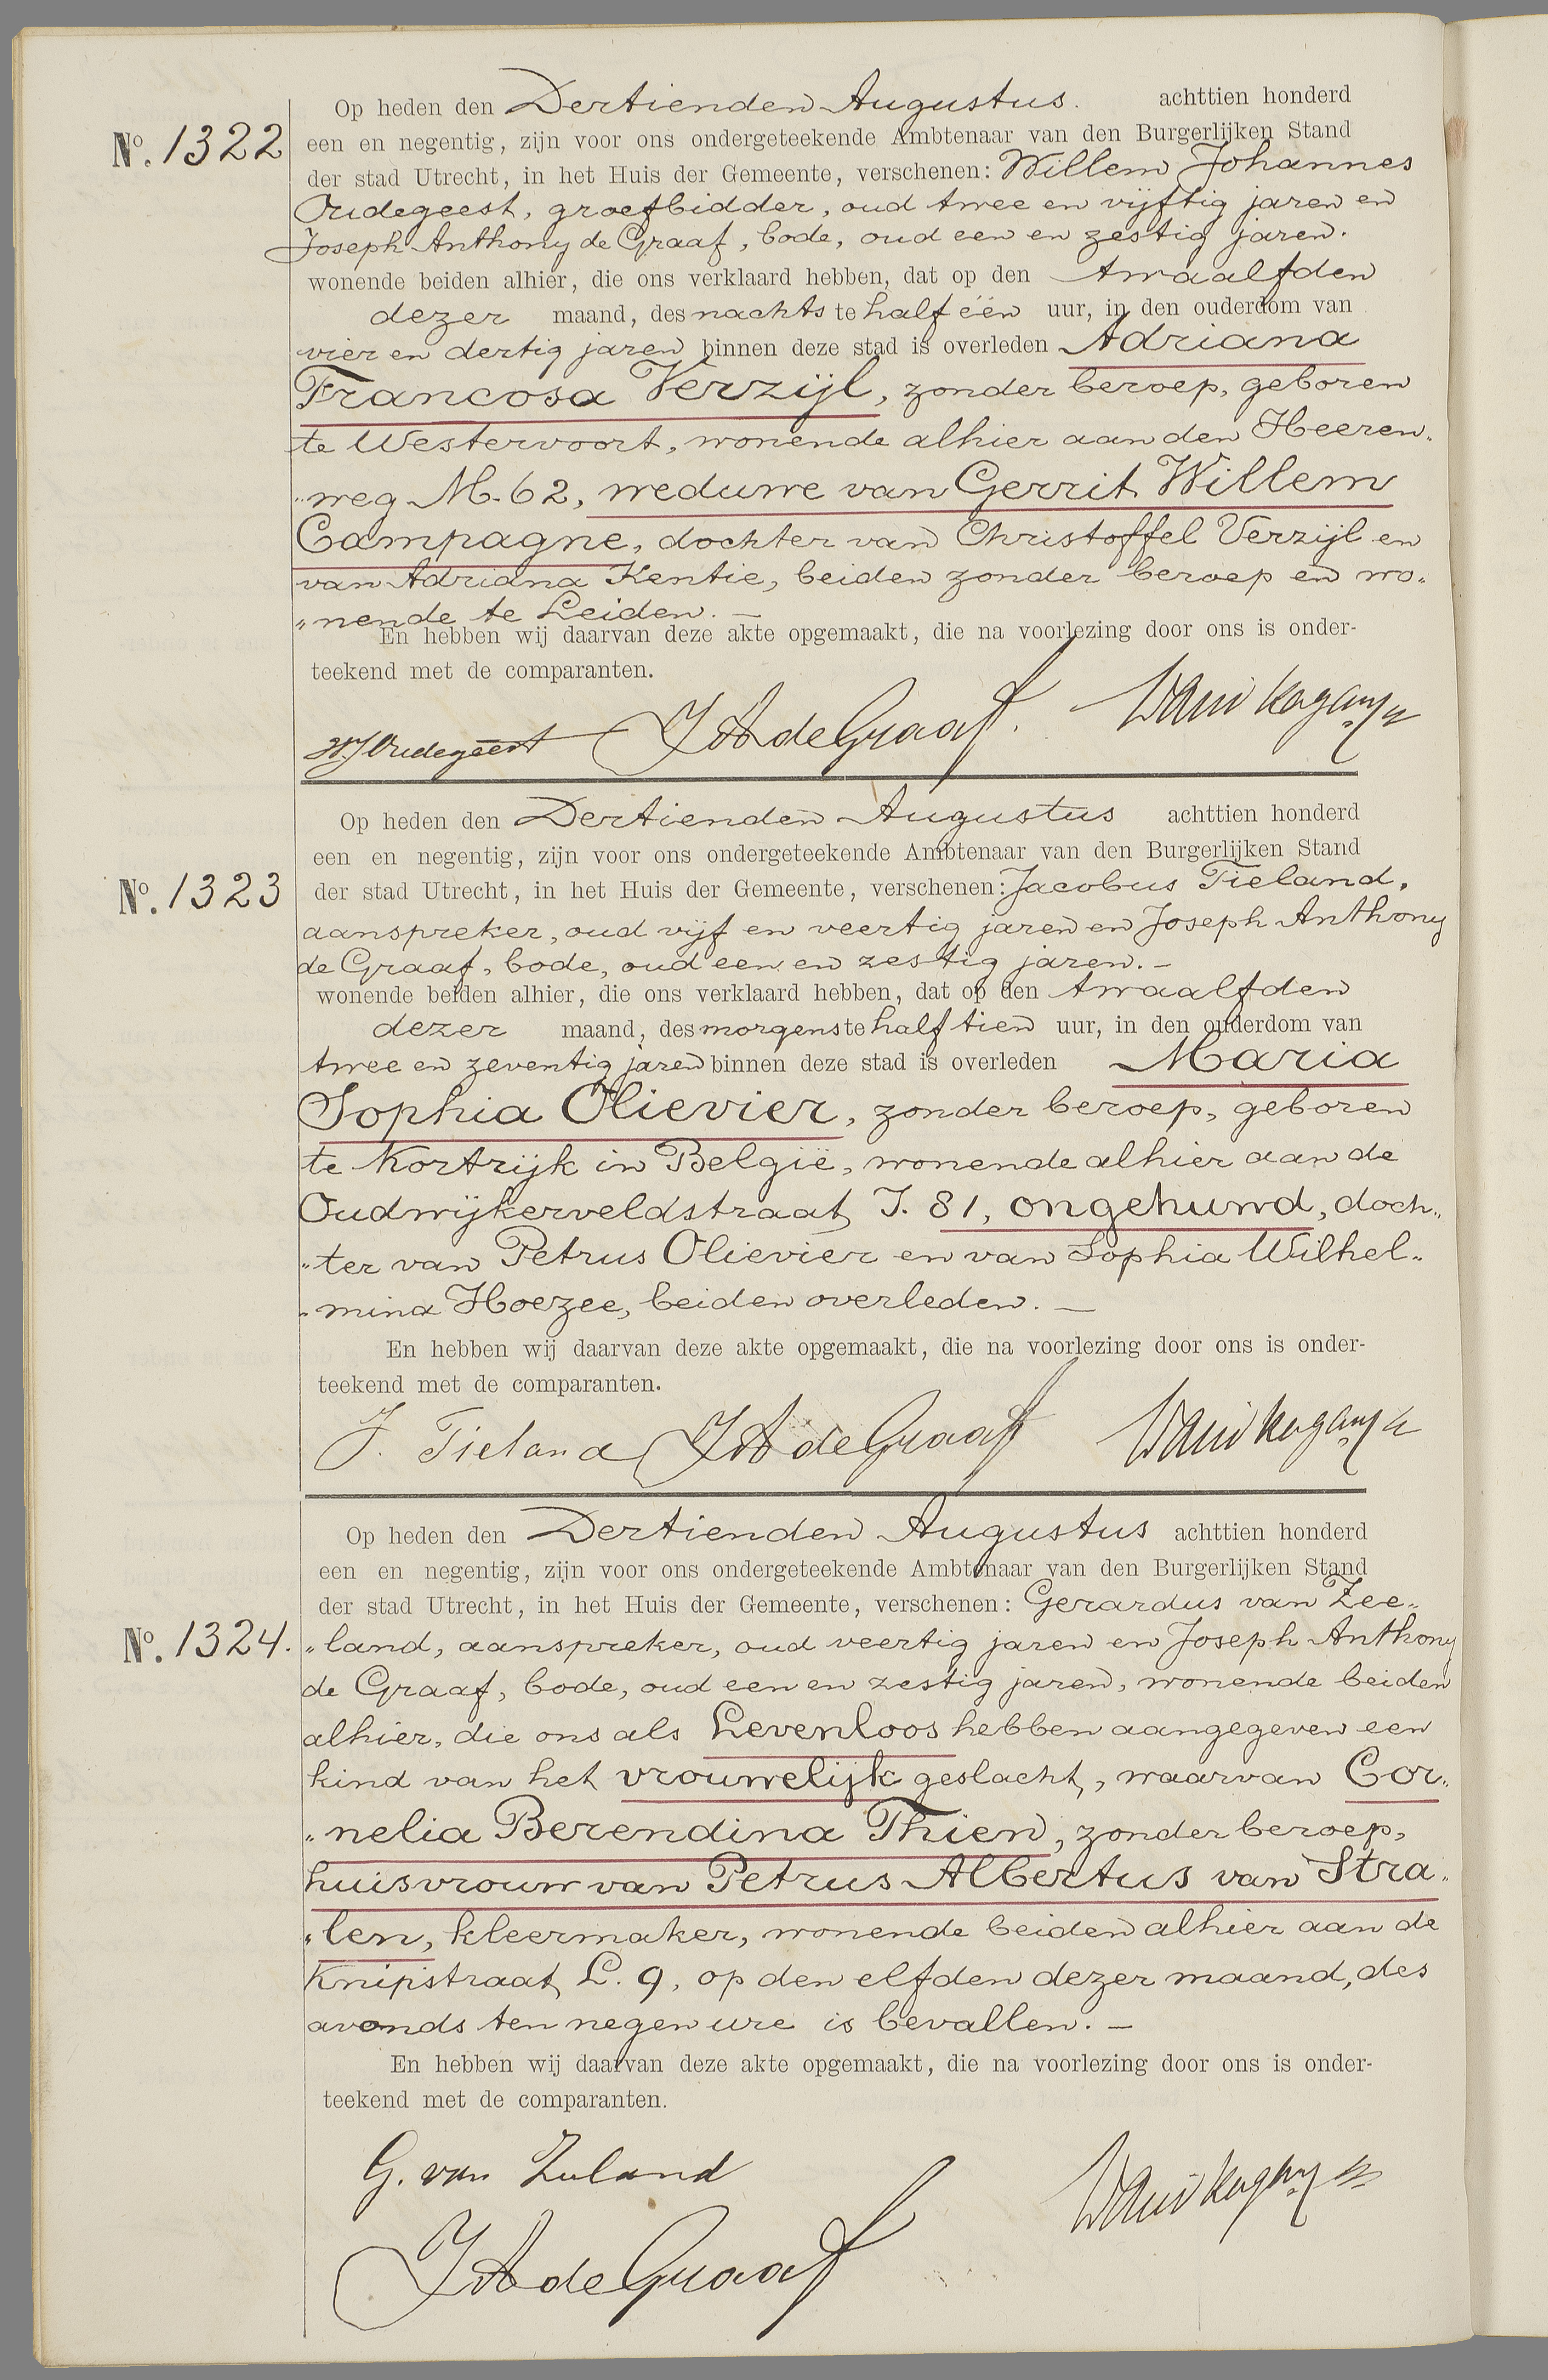 Op heden den Dertienden Augustus. achttien honderd
No. 1322 een en negentig, zijn voor ons ondergeteekende Ambtenaar van den Burgerlijken Stand
der stad Utrecht, in het Huis der Gemeente, verschenen: Willem Johannes
Oudegeest, groefbidder, oud twee en vijftig jaren en
Joseph Anthony de Graaf, bode, oud een en zestig jaren.
wonende beiden alhier, die ons verklaard hebben, dat op den twaalfden
dezer maand, des nachts te half één uur, in den ouderdom van
vier en dertig jaren binnen deze stad is overleden Adriana
Francosa Verzijl, zonder beroep, geboren
te Westervoort, wonende alhier aan den Heeren„
„weg M. 62, weduwe van Gerrit Willem
Campagne, dochter van Christoffel Verzijl en
van Adriana Kentie, beiden zonder beroep en wo„
„nende te Leiden. —
En hebben wij daarvan deze akte opgemaakt, die na voorlezing door ons is onder-
teekend met de comparanten.
WJ Oudegeest JA de Graaf.
Op heden den Dertienden Augustus achttien honderd
een en negentig, zijn voor ons ondergeteekende Ambtenaar van den Burgerlijken Stand
No. 1323 der stad Utrecht, in het Huis der Gemeente, verschenen: Jacobus Tieland,
aanspreker, oud vijf en veertig jaren en Joseph Anthony
de Graaf, bode, oud een en zestig jaren. —
wonende beiden alhier, die ons verklaard hebben, dat op den twaalfden
dezer maand, des morgens te half tien uur, in den ouderdom van
twee en zeventig jaren binnen deze stad is overleden Maria
Sophia Olievier, zonder beroep, geboren
te Kortrijk in België, wonende alhier aan de
Oudwijkerveldstraat J. 81, ongehuwd, doch„
„ter van Petrus Olievier en van Sophia Wilhel„
„mina Hoezee, beiden overleden. —
En hebben wij daarvan deze akte opgemaakt, die na voorlezing door ons is onder-
teekend met de comparanten.
J. Tieland JA de Graaf
Op heden den Dertienden Augustus achttien honderd
een en negentig, zijn voor ons ondergeteekende Ambtenaar van den Burgerlijken Stand
der stad Utrecht, in het Huis der Gemeente, verschenen: Gerardus van Zee„
No. 1324. „land, aanspreker, oud veertig jaren en Joseph Anthony
de Graaf, bode, oud een en zestig jaren, wonende beiden
alhier, die ons als Levenloos hebben aangegeven een
kind van het vrouwelijk geslacht, waarvan Cor„
„nelia Berendina Thien, zonder beroep,
huisvrouw van Petrus Albertus van Stra„
„len, kleermaker, wonende beiden alhier aan de
Knipstraat L. 9, op den elfden dezer maand, des
avonds ten negen ure is bevallen. —
En hebben wij daarvan deze akte opgemaakt, die na voorlezing door ons is onder-
teekend met de comparanten.
G. van Zeeland
JA de Graaf